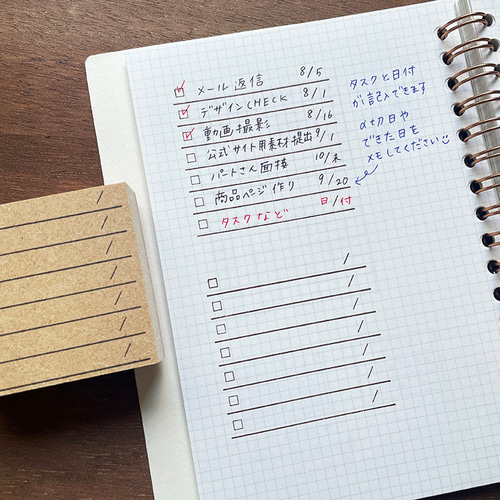 メール返信 8/5
デザインCHECK 8/1
動画撮影 8/16
公式サイト用素材提出 9/1
パートさん面接 10/末
商品ページ作り 9/20
タスクなど 日/付
タスクと日付
が記入できます
〆切日や
できた日を
メモしてください